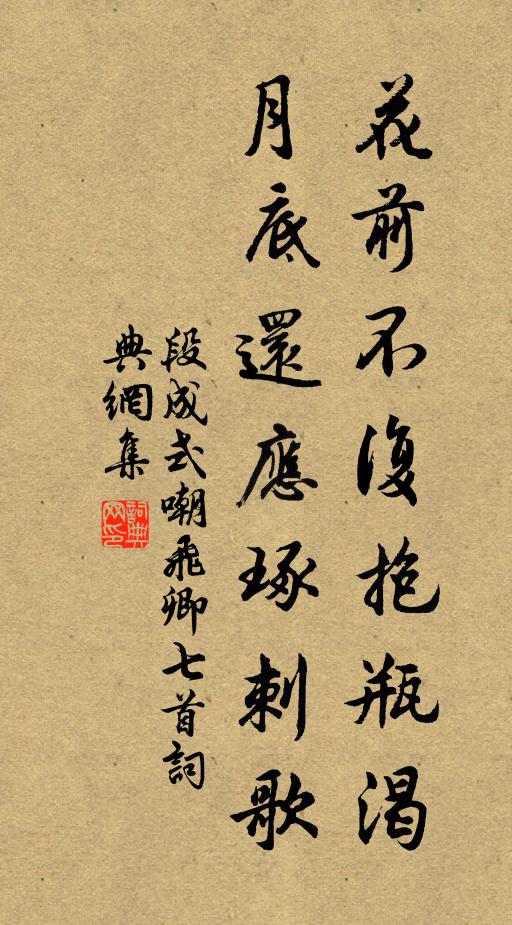 花前不復抱瓶渴
月底還應琢刺歌
段成式嘲飛卿七首詞
典網集
詞典網印